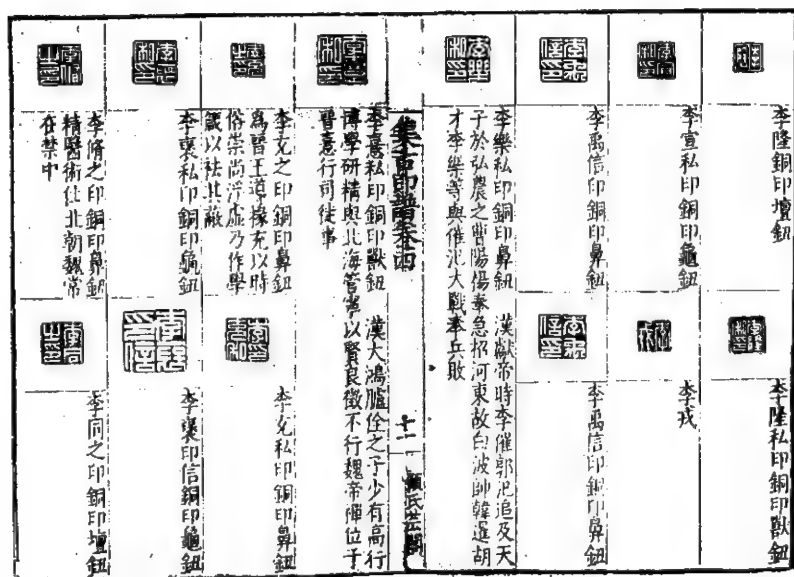 李隆銅印壇鈕
李隆私印銅印獸鈕
李宣私印銅印龜鈕
李戎
李禹信印銅印鼻鈕
李禹信印銅印鼻鈕
李樂私印銅印鼻鈕　漢獻帝時李傕郭汜追及天
子於弘農之曹陽楊奉急招河東故白波帥韓暹胡
才李樂等與傕汜大戰奉兵敗
集古印譜卷四
十二
顧氏芸閣
李憙私印銅印獸鈕　漢大鴻臚佺之子少有高行
博學研精與北海管寧以賢良徵不行魏帝禪位于
晉憙行司徒事
李充之印銅印鼻鈕
為晉王導掾充以時
俗崇尚浮虛乃作學
箴以袪其敝
李充私印銅印鼻鈕
李褒私印銅印龜鈕
李褒印信銅印龜鈕
李脩之印銅印鼻鈕
精醫術仕北朝魏常
在禁中
李同之印銅印壇鈕